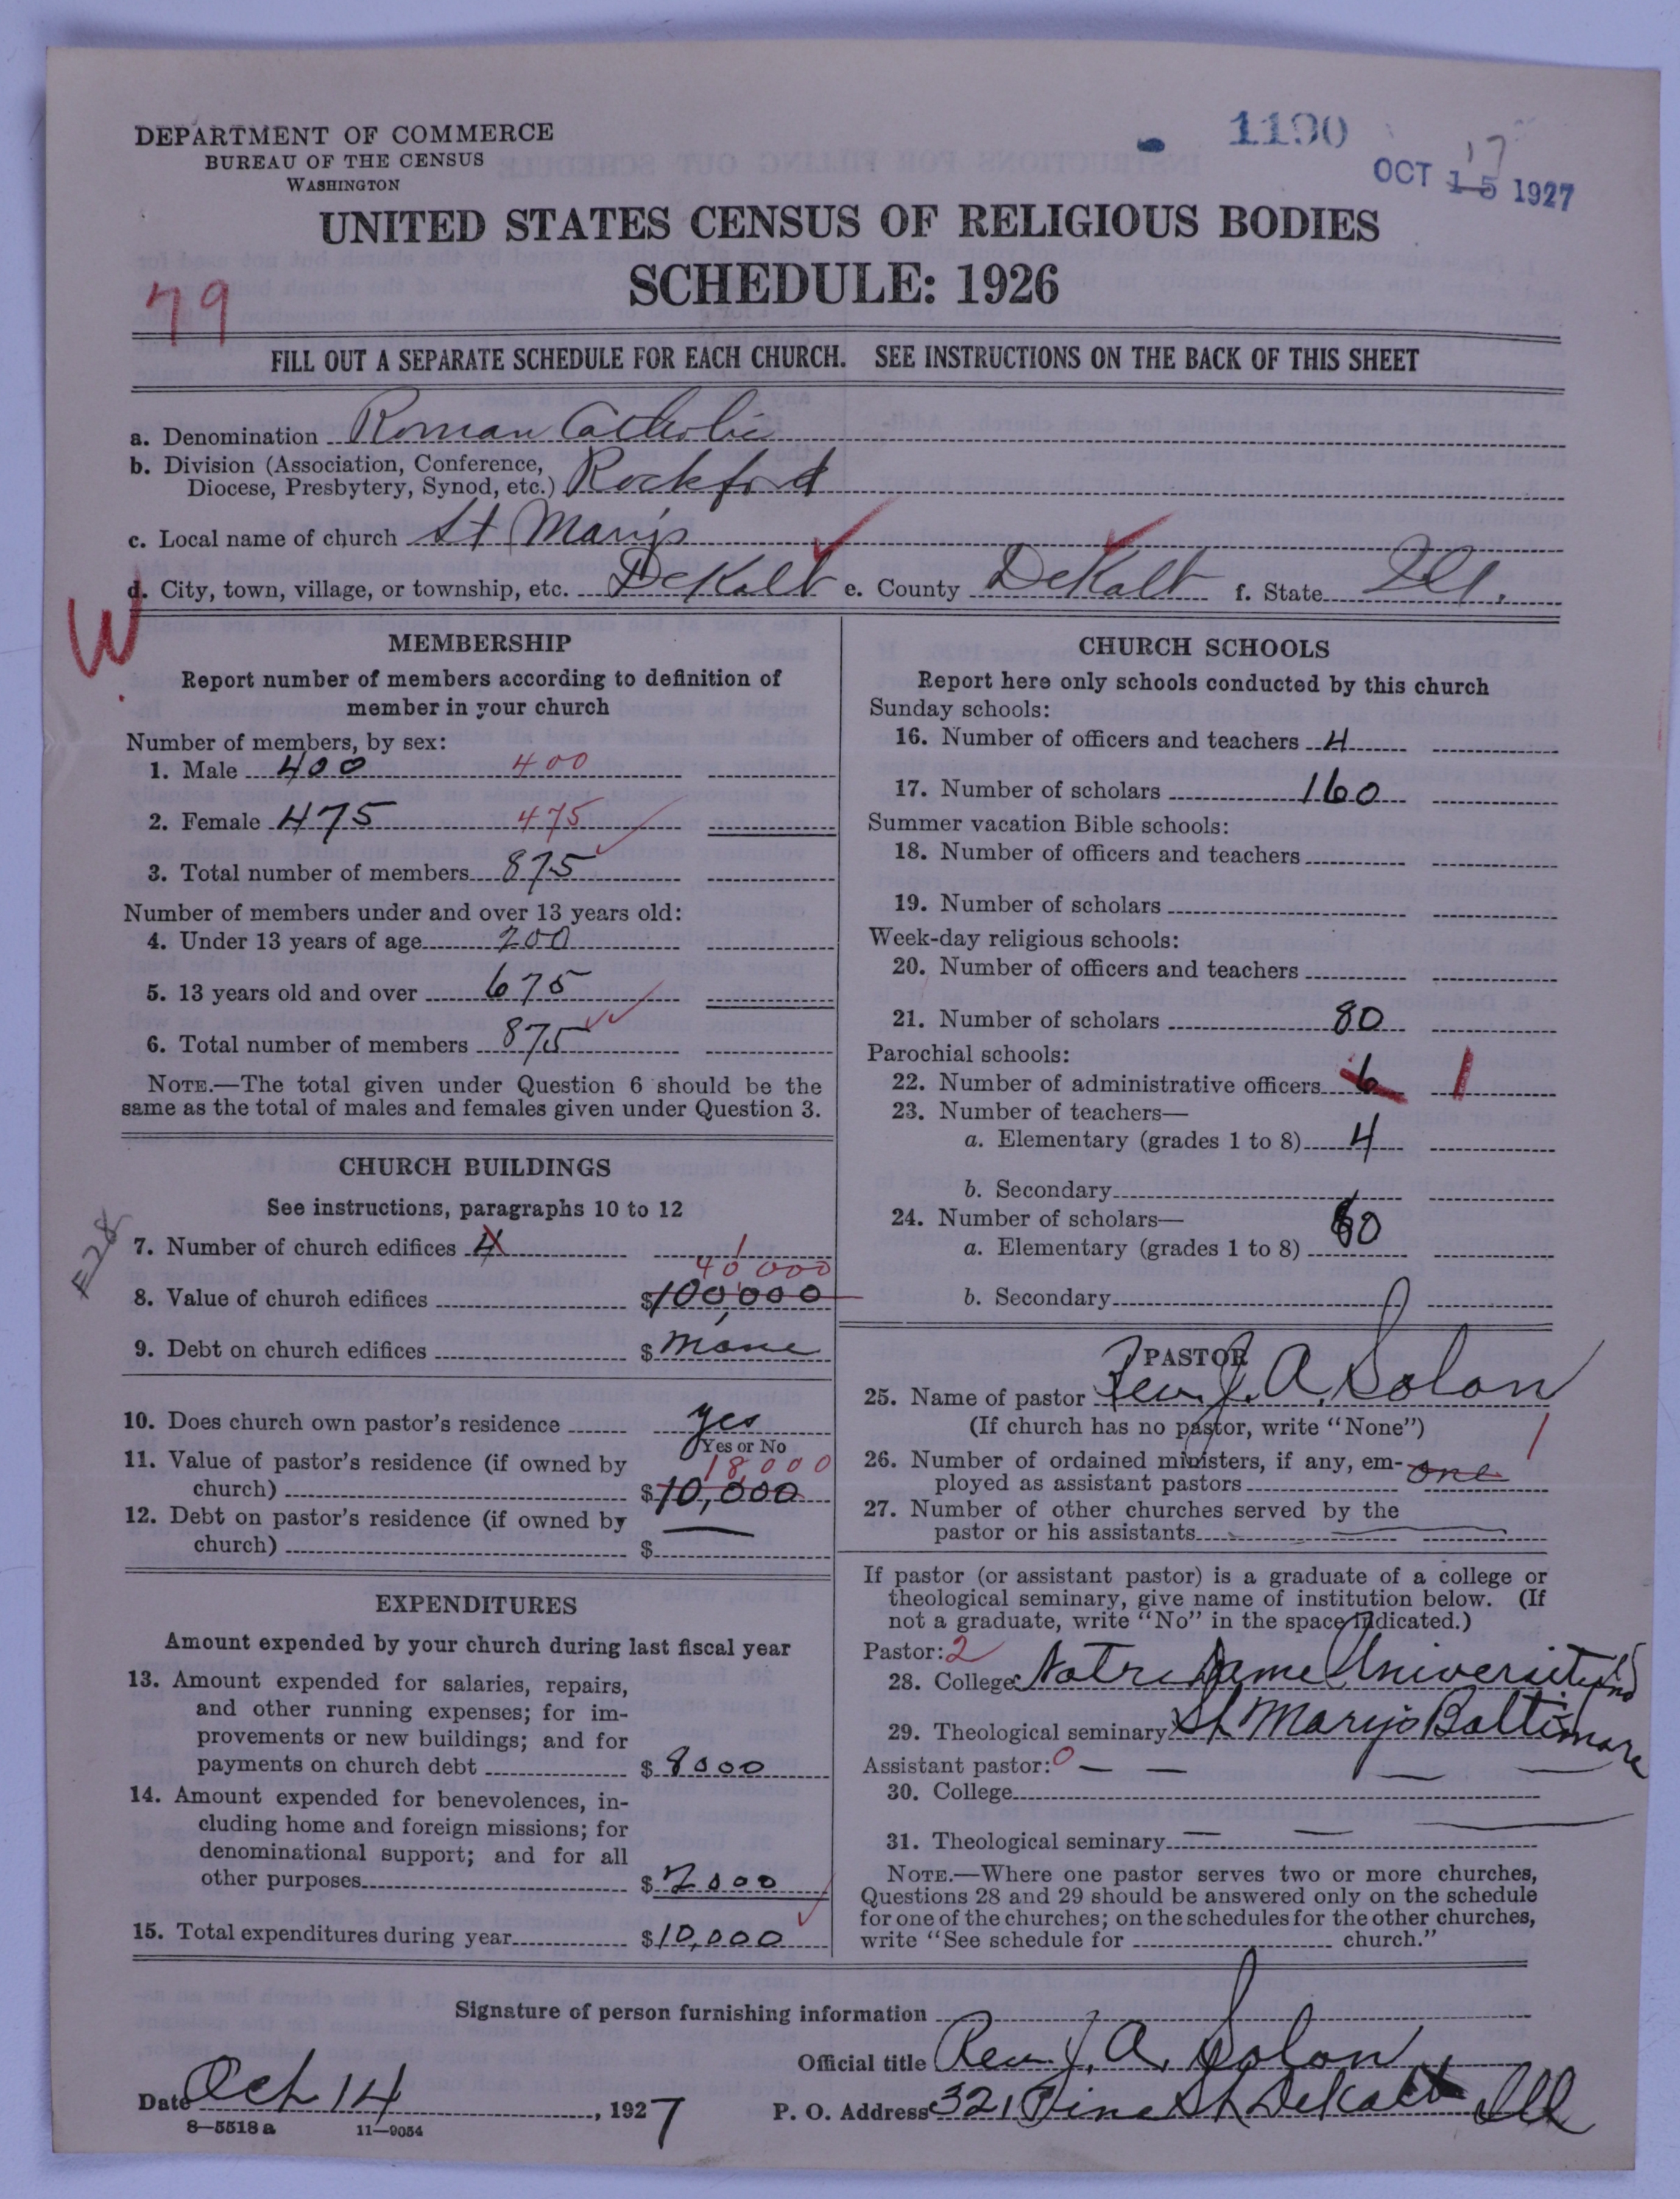 DEPARTMENT OF COMMERCE
BUREAU OF THE CENSUS
WASHINGTON
1190
17
OCT 15 1927
UNITED STATES CENSUS OF RELIGIOUS BODIES
SCHEDULE: 1926
79
FILL OUT A SEPARATE SCHEDULE FOR EACH CHURCH. SEE INSTRUCTIONS ON THE BACK OF THIS SHEET
a. Denomination Roman Catholic
b. Division (Association, Conference,
Diocese, Presbytery, Synod, etc.) Rockford
c. Local name of church St Mary's
d. City, town, village, or township, etc. DeKalb e. County DeKalb f. State Ill.
W
MEMBERSHIP
Report number of members according to definition of
member in your church
Number of members, by sex:
1. Male 400 400
2. Female 475 475
3. Total number of members 875
Number of members under and over 13 years old:
4. Under 13 years of age 200
5. 13 years old and over 675
6. Total number of members 875
NOTE.—The total given under Question 6 should be the
same as the total of males and females given under Question 3.
CHURCH BUILDINGS
See instructions, paragraphs 10 to 12
7. Number of church edifices 4 1
40 000
8. Value of church edifices $ 100,000
9. Debt on church edifices $ None
10. Does church own pastor's residence yes
Yes or No
11. Value of pastor's residence (if owned by 18,000
church) $ 10,000
12. Debt on pastor's residence (if owned by
church) $
EXPENDITURES
Amount expended by your church during last fiscal year
13. Amount expended for salaries, repairs,
and other running expenses; for im-
provements or new buildings; and for
payments on church debt $ 8000
14. Amount expended for benevolences, in-
cluding home and foreign missions; for
denominational support; and for all
other purposes $ 2000
15. Total expenditures during year $ 10,000
CHURCH SCHOOLS
Report here only schools conducted by this church
Sunday schools:
16. Number of officers and teachers 4
17. Number of scholars 160
Summer vacation Bible schools:
18. Number of officers and teachers
19. Number of scholars
Week-day religious schools:
20. Number of officers and teachers
21. Number of scholars 80
Parochial schools:
22. Number of administrative officers 6 1
23. Number of teachers—
a. Elementary (grades 1 to 8) 4
b. Secondary
24. Number of scholars—
a. Elementary (grades 1 to 8)
b. Secondary
PASTOR
25. Name of pastor Rev. J. A. Solon
(If church has no pastor, write "None")
26. Number of ordained ministers, if any, em- one 1
ployed as assistant pastors
27. Number of other churches served by the
pastor or his assistants
If pastor (or assistant pastor) is a graduate of a college or
theological seminary, give name of institution below. (If
not a graduate, write "No" in the space indicated.)
Pastor: 2
28. College Notre Dame University Ind
29. Theological seminary St Mary's Baltimore
Assistant pastor: 0
30. College
31. Theological seminary
NOTE.—Where one pastor serves two or more churches,
Questions 28 and 29 should be answered only on the schedule
for one of the churches; on the schedules for the other churches,
write "See schedule for church."
Signature of person furnishing information
Official title Rev. J. A. Solon
Date Oct 14, 1927
P. O. Address 321 Pine St DeKalb Ill
8—5518 a 11—9054